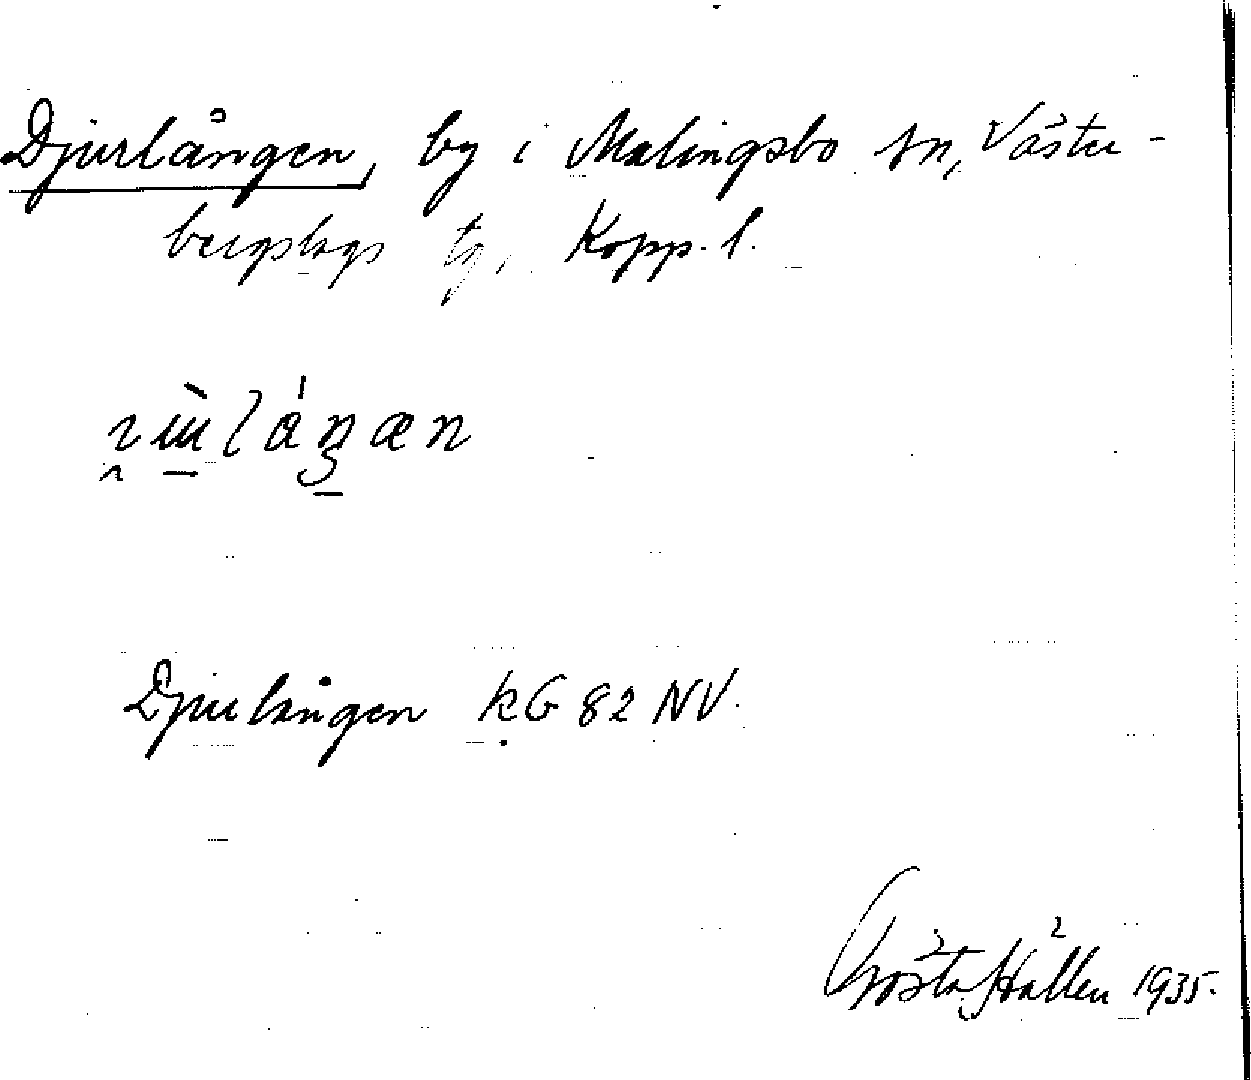 Djurlången, by i Malingsbo sn, Väster-
bergslags tg, Kopp. l.
Djurlången kG 82 NV.
Gösta Hallen 1935.